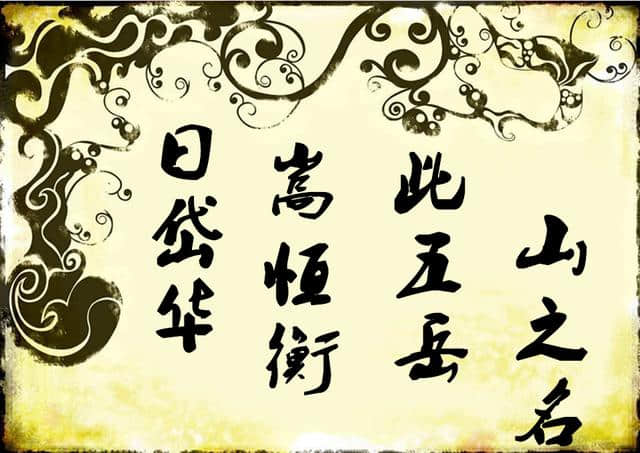 日岱华
嵩恒衡
此五岳
山之名